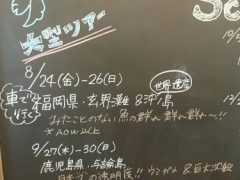 大型ツアー
8/24(金)-26(日)
世界遺産
車で行く 福岡県・玄界灘&沖ノ島
みたことのない魚の群れ 群れ 群れ〜!!
9/27(木)-30(日)
鹿児島県・与論島
の透明度!! ウミガメ&巨大沈船